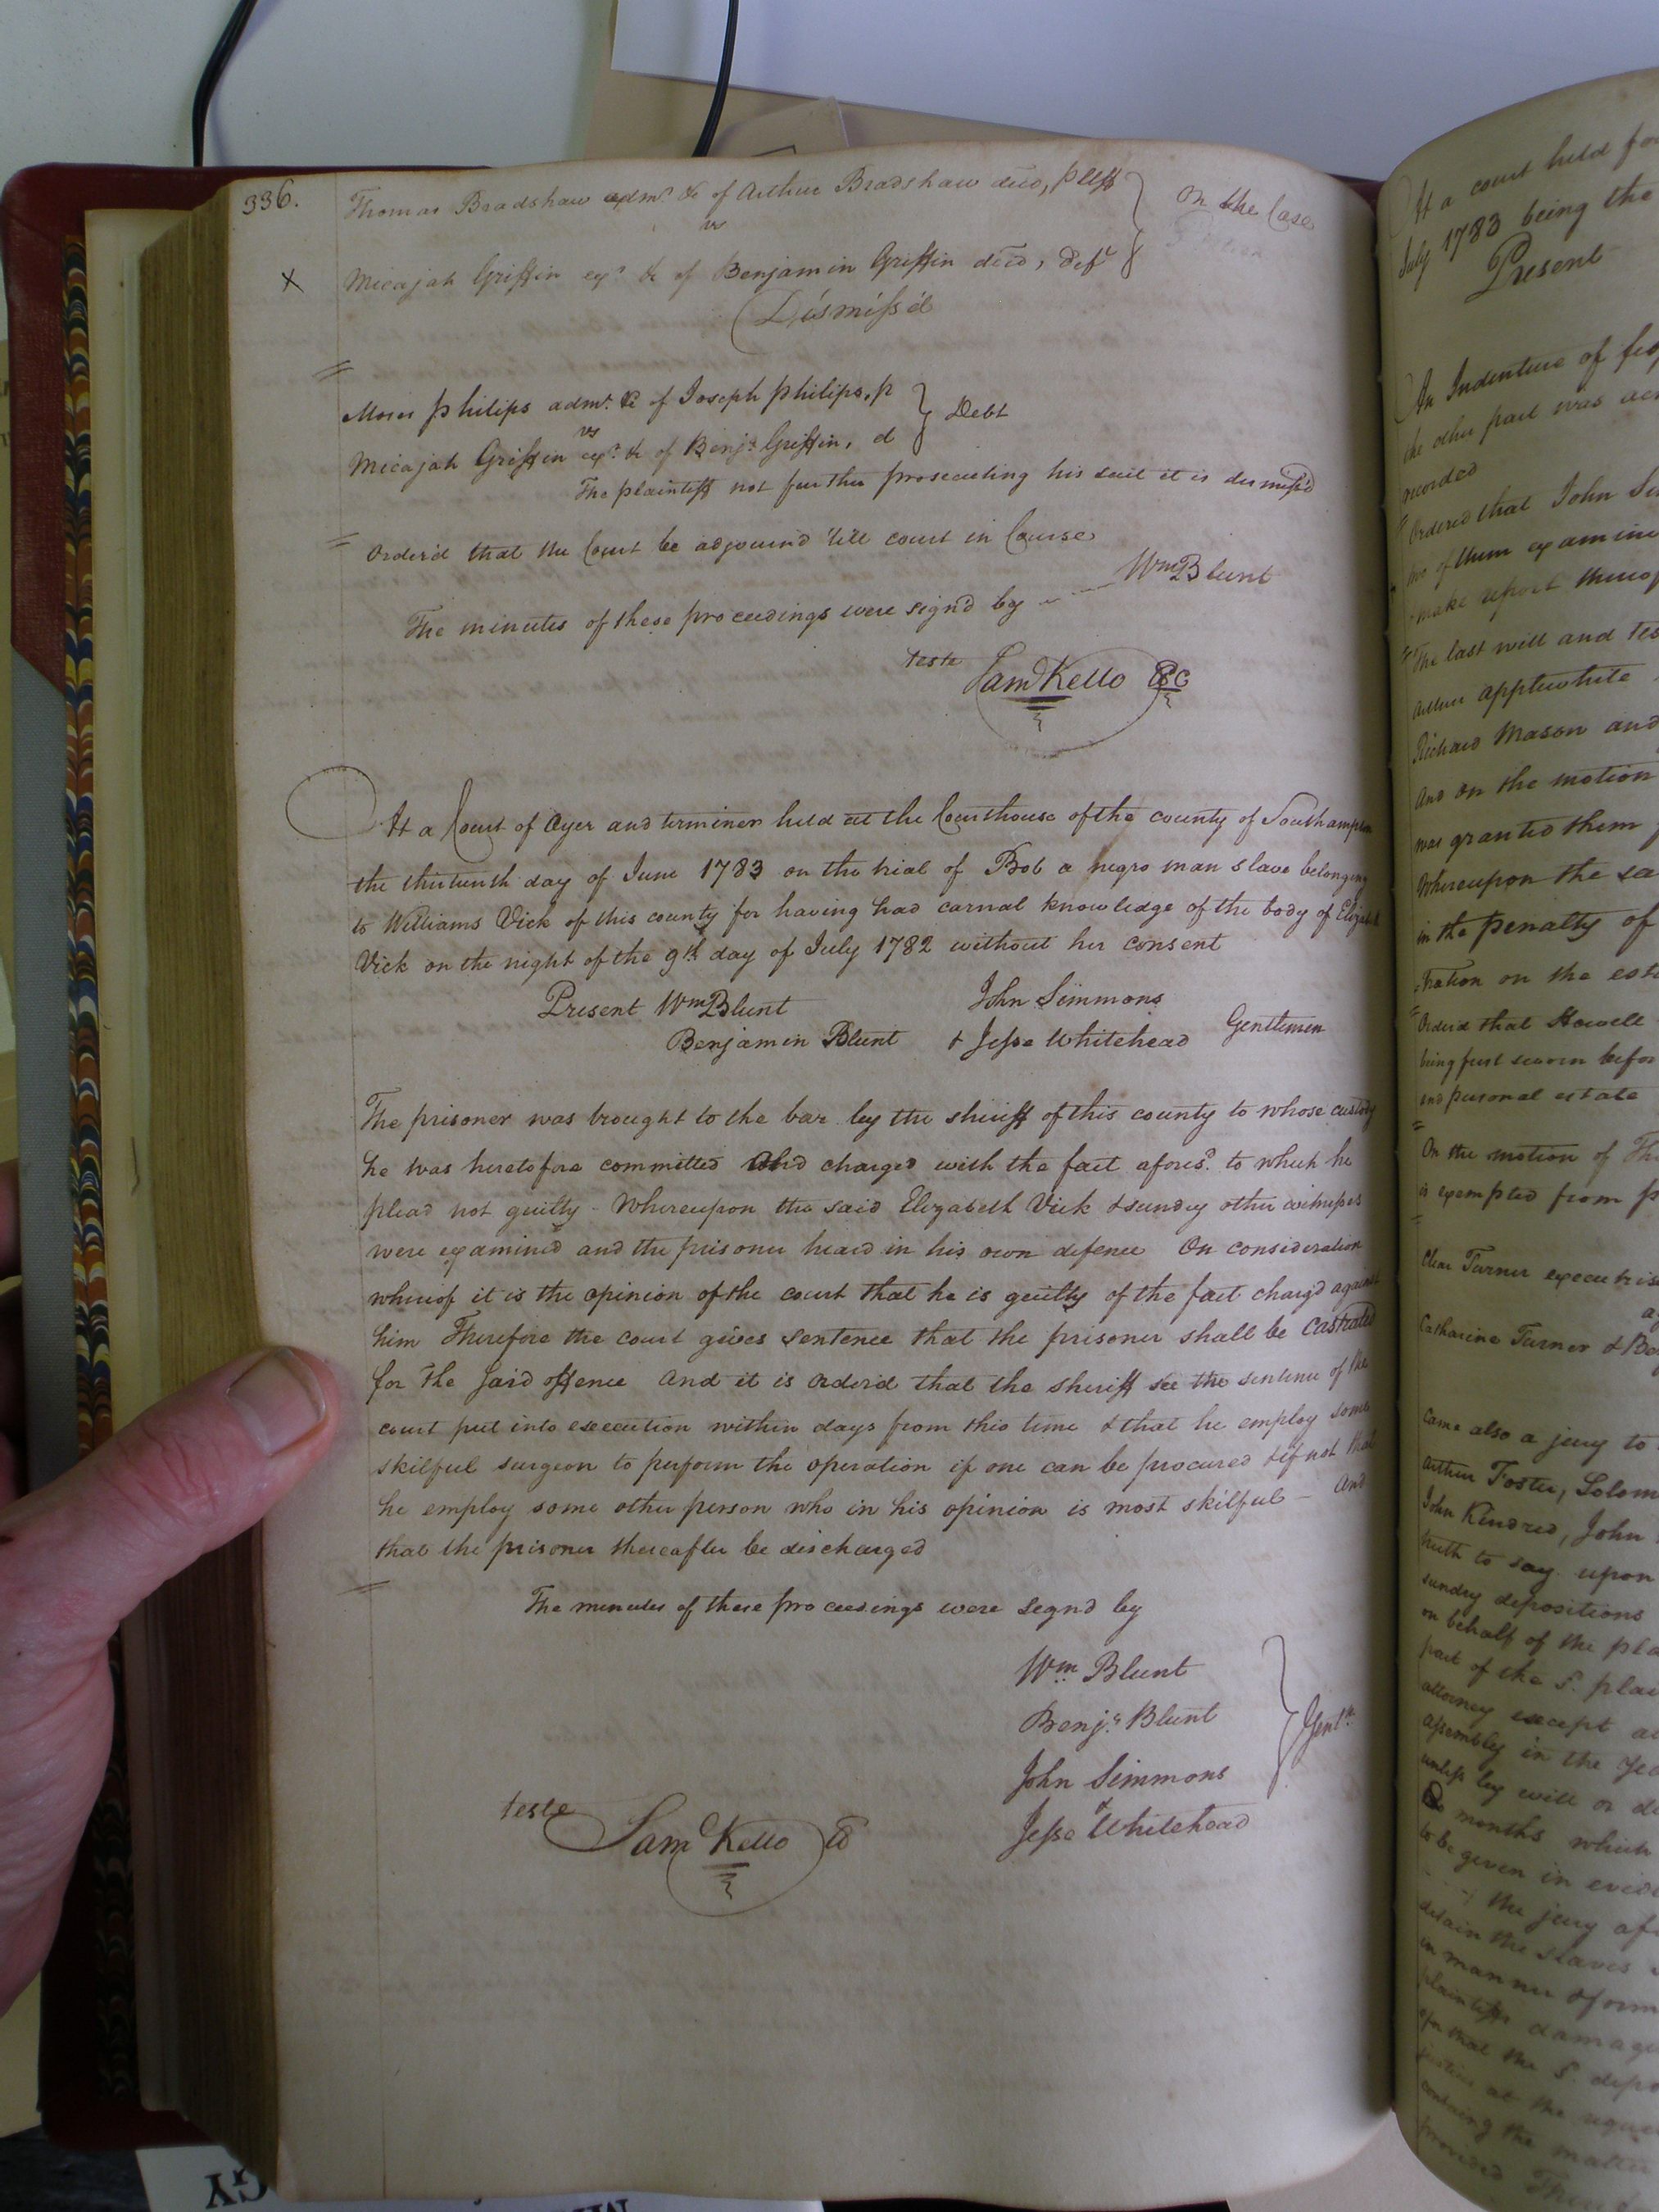 336.
Thomas Bradshaw adm.r &c of Arthur Bradshaw decd, pltff } On the Case
vs
X Micajah Griffin exr. &c of Benjamin Griffin decd, deft
Dismiss'd
Moses Philips admr. &c of Joseph Philips, p } Debt
vs
Micajah Griffin exr. &c of Benja. Griffin, d
The plaintiff not further prosecuting his suit it is dismiss'd
Order'd that the Court be adjourn'd 'till court in Course
The minutes of these proceedings were sign'd by Wm Blunt
Teste
Sam Kello CC
At a Court of Oyer and terminer held at the Courthouse of the county of Southampton
the thirteenth day of June 1783 on the trial of Bob a negro man slave belonging
to Williams Vick of this county for having had carnal knowledge of the body of Elizabeth
Vick on the night of the 9th day of July 1782 without her consent
Present Wm Blunt John Simmons
Benjamin Blunt & Jesse Whitehead Gentlemen
The prisoner was brought to the bar by the sheriff of this county to whose custody
he was heretofore committed and charged with the fact afores.d to which he
plead not guilty. Whereupon the said Elizabeth Vick & sundry other witnesses
were examined and the prisoner heard in his own defence On consideration
whereof it is the opinion of the court that he is guilty of the fact charg'd against
him Therefore the court gives sentence that the prisoner shall be castrated
for the said offence And it is order'd that the sheriff see the sentence of the
court put into execution within days from this time & that he employ some
skilful surgeon to perform the operation if one can be procured & if not that
he employ some other person who in his opinion is most skilful – And
that the prisoner thereafter be discharged
The minutes of these proceedings were signd by
Wm. Blunt
Benja. Blunt
John Simmons
&
Jesse Whitehead
} Gentn.
teste
Sam Kello CC
At a court held for
July 1783 being the
Present
An Indenture of
the other part was
recorded
Ordered that John
two of them examine
make report thereof
The last will and
Arthur Applewhite
Richard Mason and
And on the motion
was granted them
Whereupon the
in the penalty of
tration on the
Orderd that Howell
being first sworn
and personal estate
On the motion of
is exempted from
Clear Turner
Catharine Turner &
Came also a jury to
Arthur Foster,
John Kindred, John
truth to say upon
sundry depositions
on behalf of the
part of the S.
attorney except
Assembly in the
unless by will or
months which
to be given in
the jury
detain the slaves
in manner & form
plaintiffs
that the S.
at the
the matter
provided